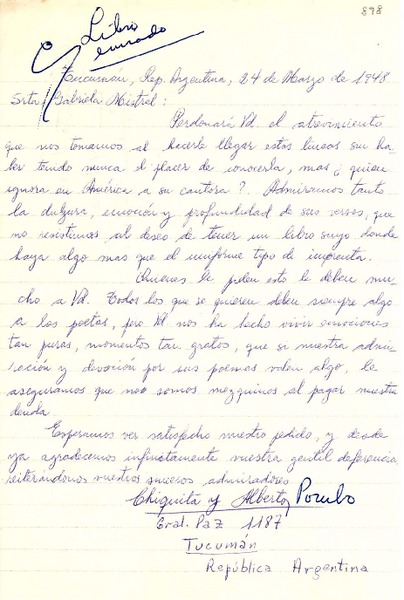 898
Libro
enviado
Tucumán, Rep. Argentina, 24 de Marzo de 1948
Srta Gabriela Mistral:
Perdonará Vd. el atrevimiento
que nos tomamos al hacerle llegar estas líneas sin ha-
ber tenido nunca el placer de conocerla, mas ¿quien
ignora en América a su cantora?. Admiramos tanto
la dulzura, emoción y profundidad de sus versos, que
no resistimos al deseo de tener un libro suyo donde
haya algo mas que el uniforme tipo de imprenta.
Quienes le piden esto le deben mu-
cho a Vd. Todos los que se quieren deben siempre algo
a los poetas, pero Vd nos ha hecho vivir emociones
tan puras, momentos tan gratos, que si nuestra admi-
ración y devoción por sus poemas valen algo, le
aseguramos que no somos mezquinos al pagar nuestra
deuda.
Esperamos ver satisfecho nuestro pedido, y desde
ya agradecemos infinitamente vuestra gentil deferencia,
reiterándonos vuestros sinceros admiradores
Chiquita y Alberto
Gral. Paz 1187
Tucumán
República Argentina